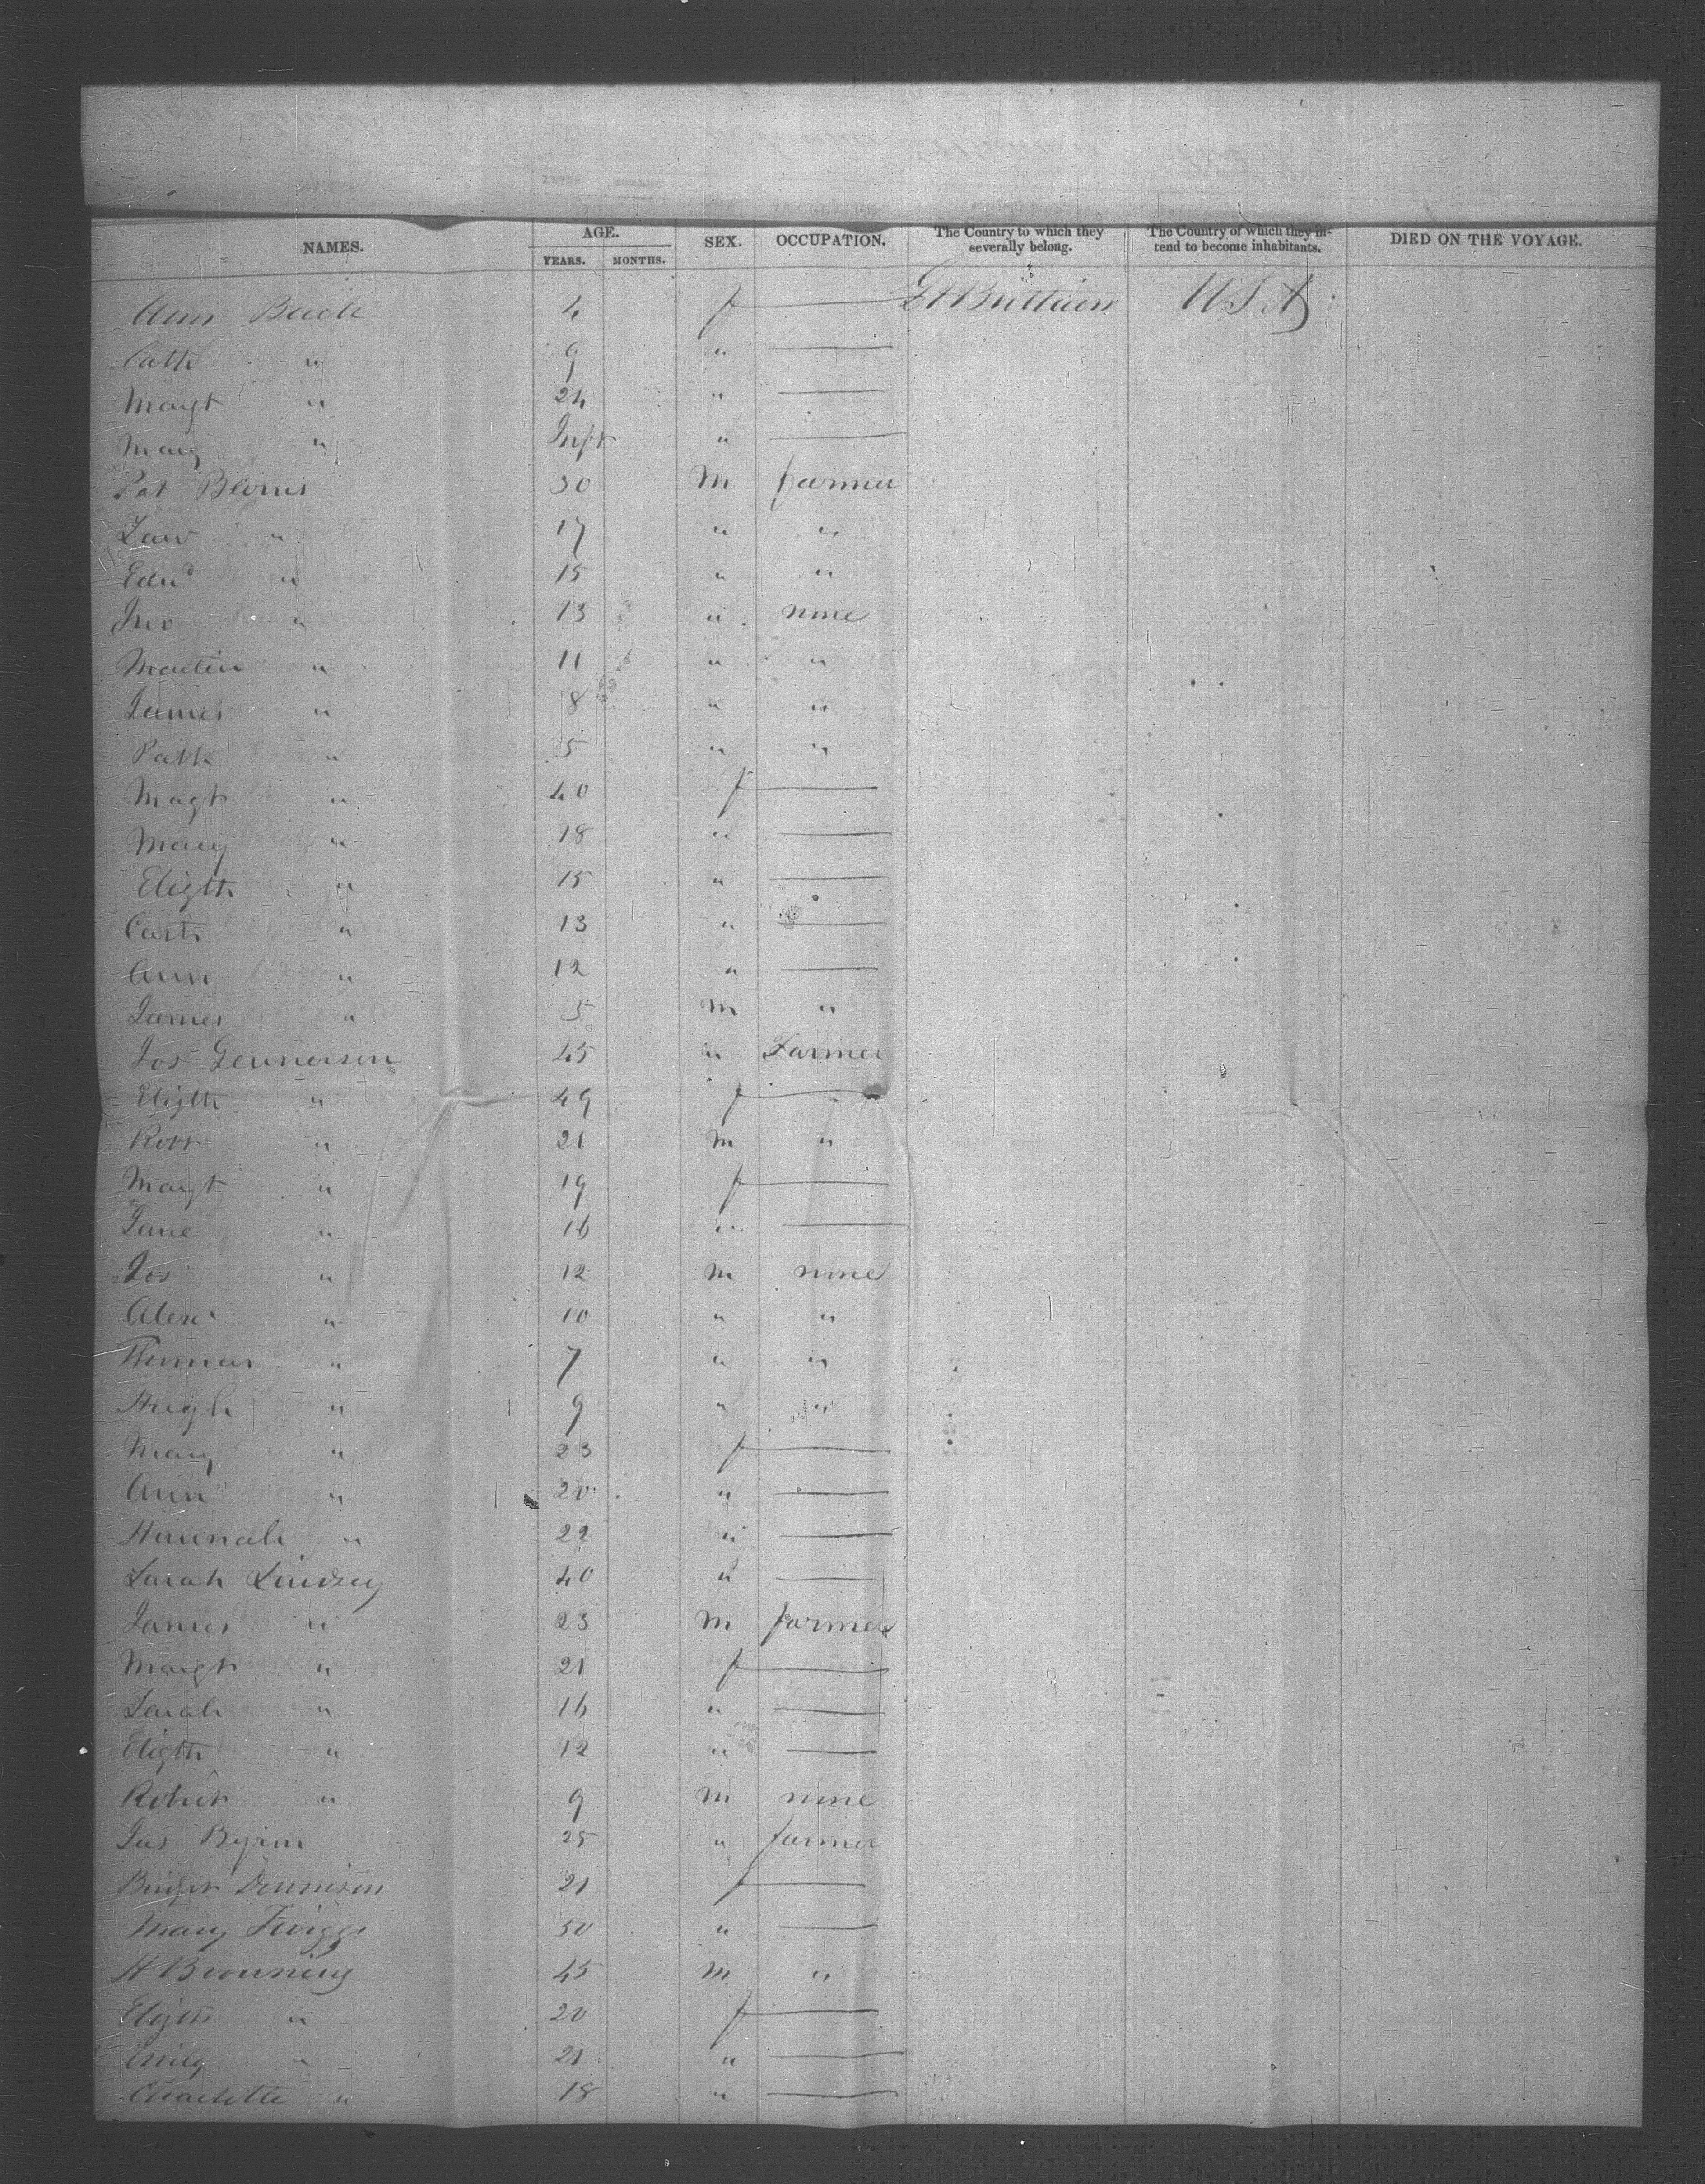 NAMES. AGE. SEX. OCCUPATION. The Country to which they severally belong. The Country of which they intend to become inhabitants. DIED ON THE VOYAGE.
YEARS. MONTHS.
Ann 4 f Gt Brittain U S A
Cath " 9 "
Margt " 24 "
Mary " Inft "
Pat 30 M farmer
Law " 17 " "
Edwd " 15 " "
Jno " 13 " none
Martin " 11 " "
James " 8 " "
Patk " 5 " "
Magt " 40 f
Mary " 18 "
Elizth " 15 "
Cath " 13 "
Ann " 12 "
James " 5 M "
Jos 45 " Farmer
Elizth " 49 f
Robt " 21 M "
Margt " 19 f
Jane " 16 "
Jos " 12 M none
Alexr " 10 " "
Thomas " 7 " "
Hugh " 9 " "
Mary " 23 f
Ann " 20 "
Hannah " 22 "
Sarah Lindsey 40 "
James " 23 M farmer
Margt " 21 f
Sarah " 16 "
Elizth " 12 "
Robert " 9 M none
Jas 25 " farmer
Bridget Dennison 21 f
Mary "
H Browning 45 M "
Elizth " 20 f
Emily " 21 "
Charlotte " 18 "